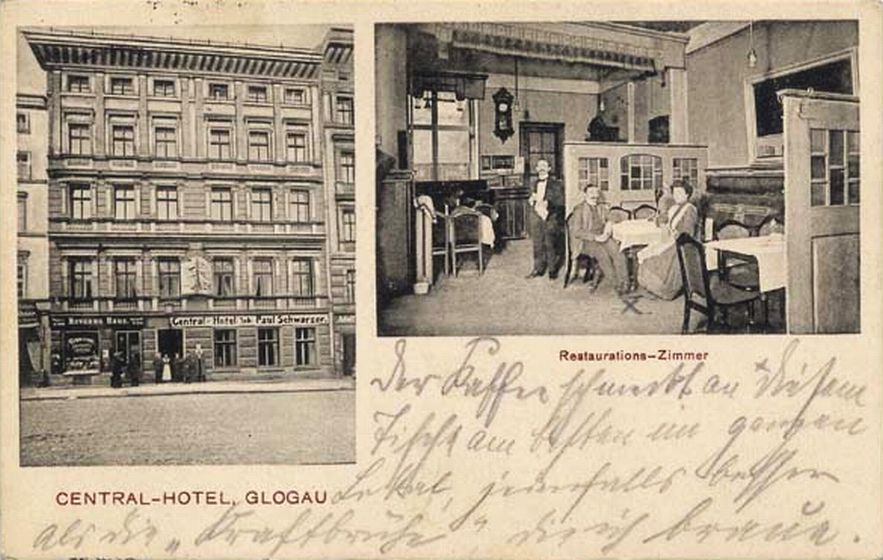 REVERUS HAUS.
Central-Hotel Inh. Paul Schwarzer.
Restaurations-Zimmer
Der Kaffee schmeckt an x diesem
Tische am besten im ganzen
CENTRAL-HOTEL, GLOGAU
Lokal, jedenfalls besser
als die „Kraftbrühe“ die ich braue.